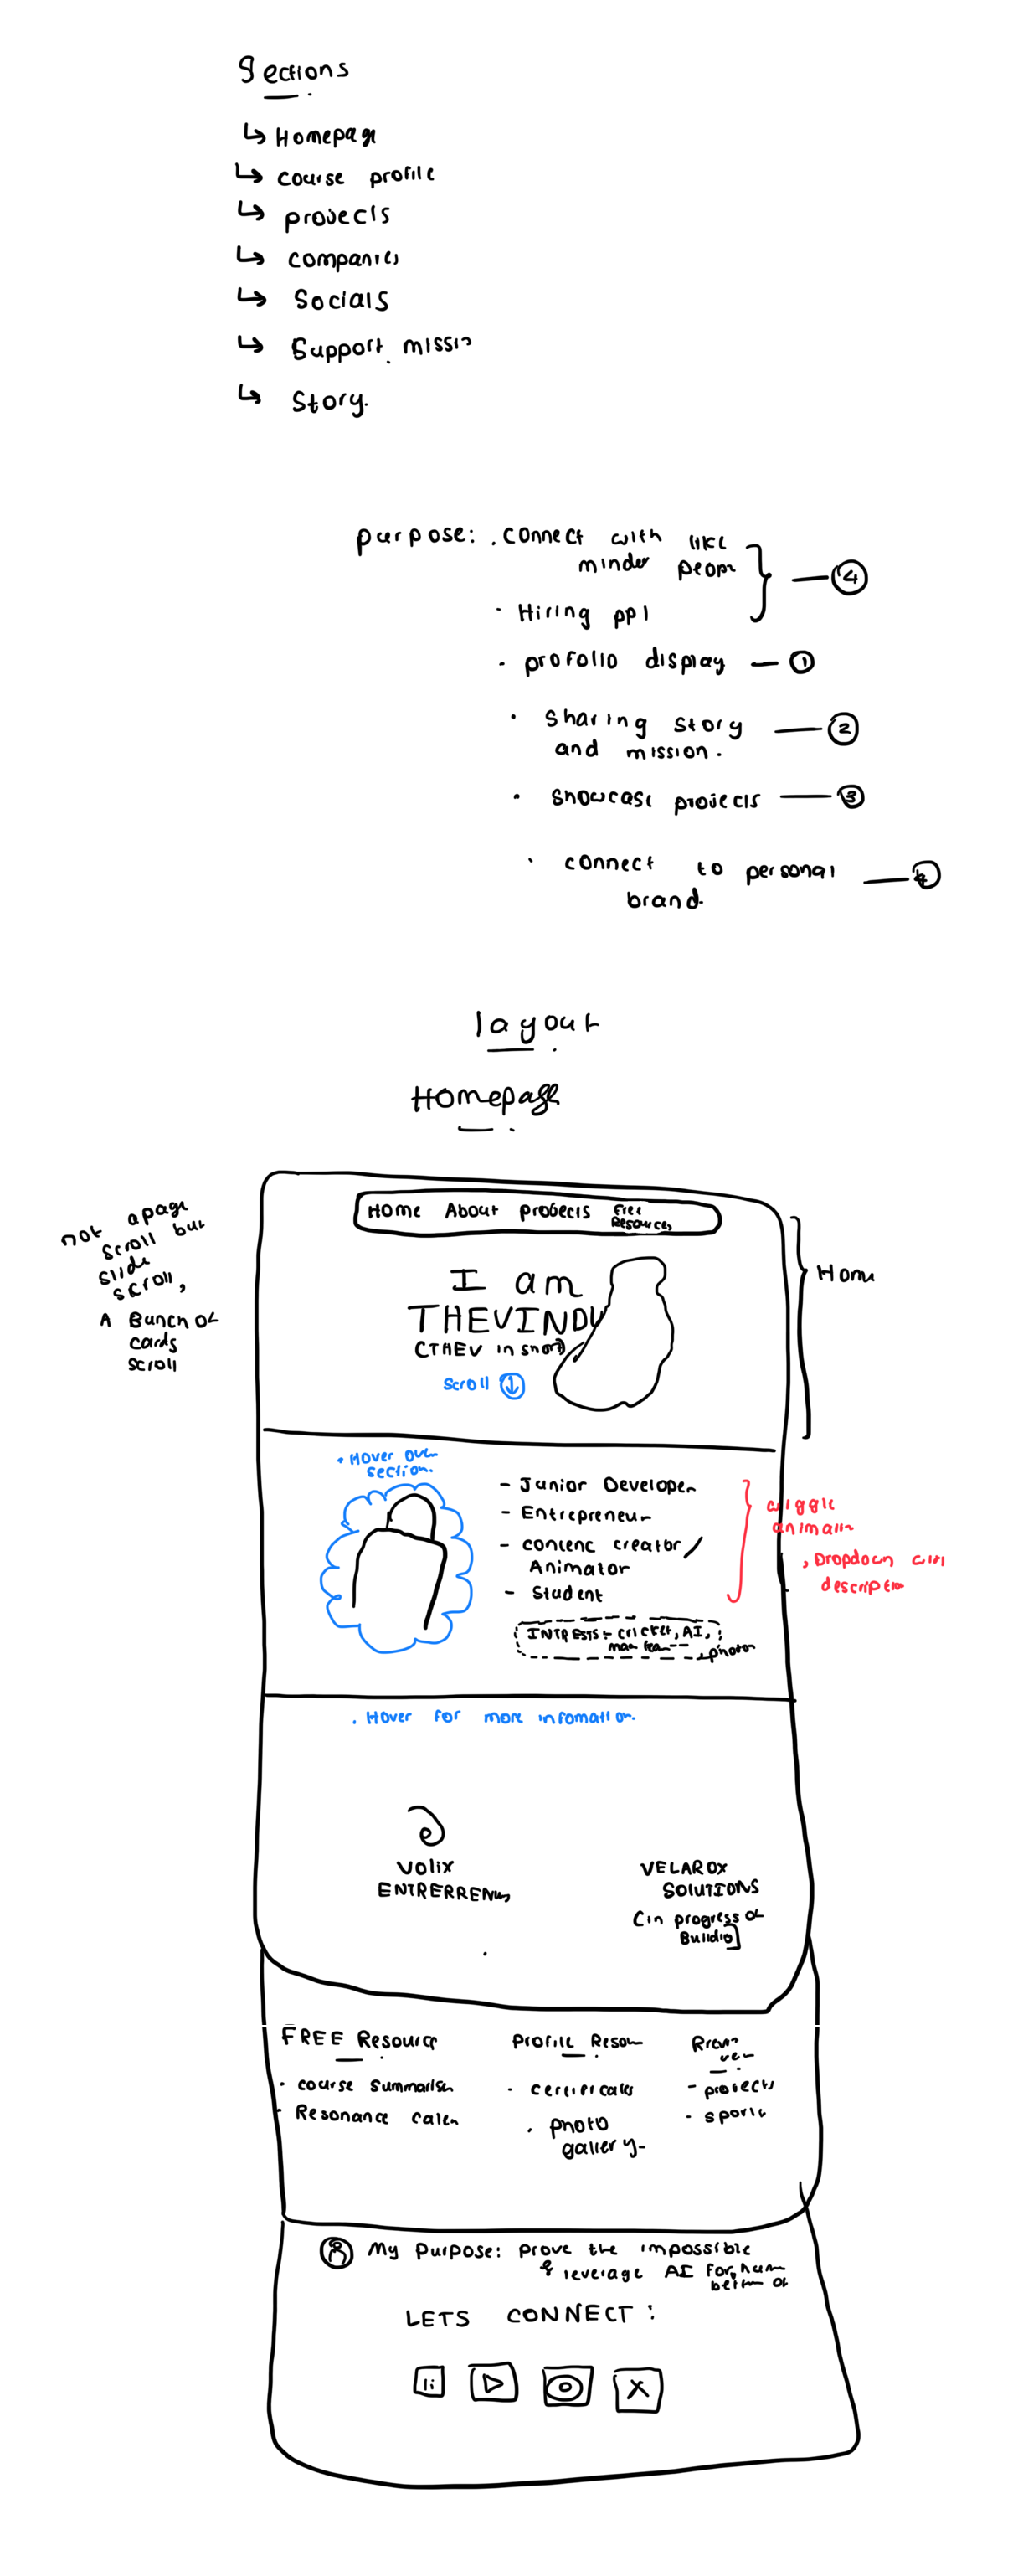 Sections
Homepage
course profile
projects
companies
Socials
Support missio
Story.
purpose: . connect with like
minded people
. Hiring ppl
4
. profolio display
1
. sharing story
and mission.
2
. showcase projects
3
. connect to personal
brand.
4
layout
Homepage
not a page
scroll but
slide
scroll,
A Bunch of
cards
scroll
Home About projects Free
Resources
Home
I am
THEVINDU
(THEV in short)
scroll
. Hover over
section.
- Junior Developer
- Entrepreneur
- content creator/
Animator
- Student
wiggle
animatin
, Dropdown with
description
INTRESTS:- cricket, AI,
photos
. Hover for more infomation.
VOLIX
VELAROX
SOLUTIONS
(in progress of
FREE Resource
. course summaries
. Resonance
Profile
. certificates
. photo
gallery
- projects
- sports
My purpose: prove the impossible
& leverage AI for
LETS CONNECT:
X